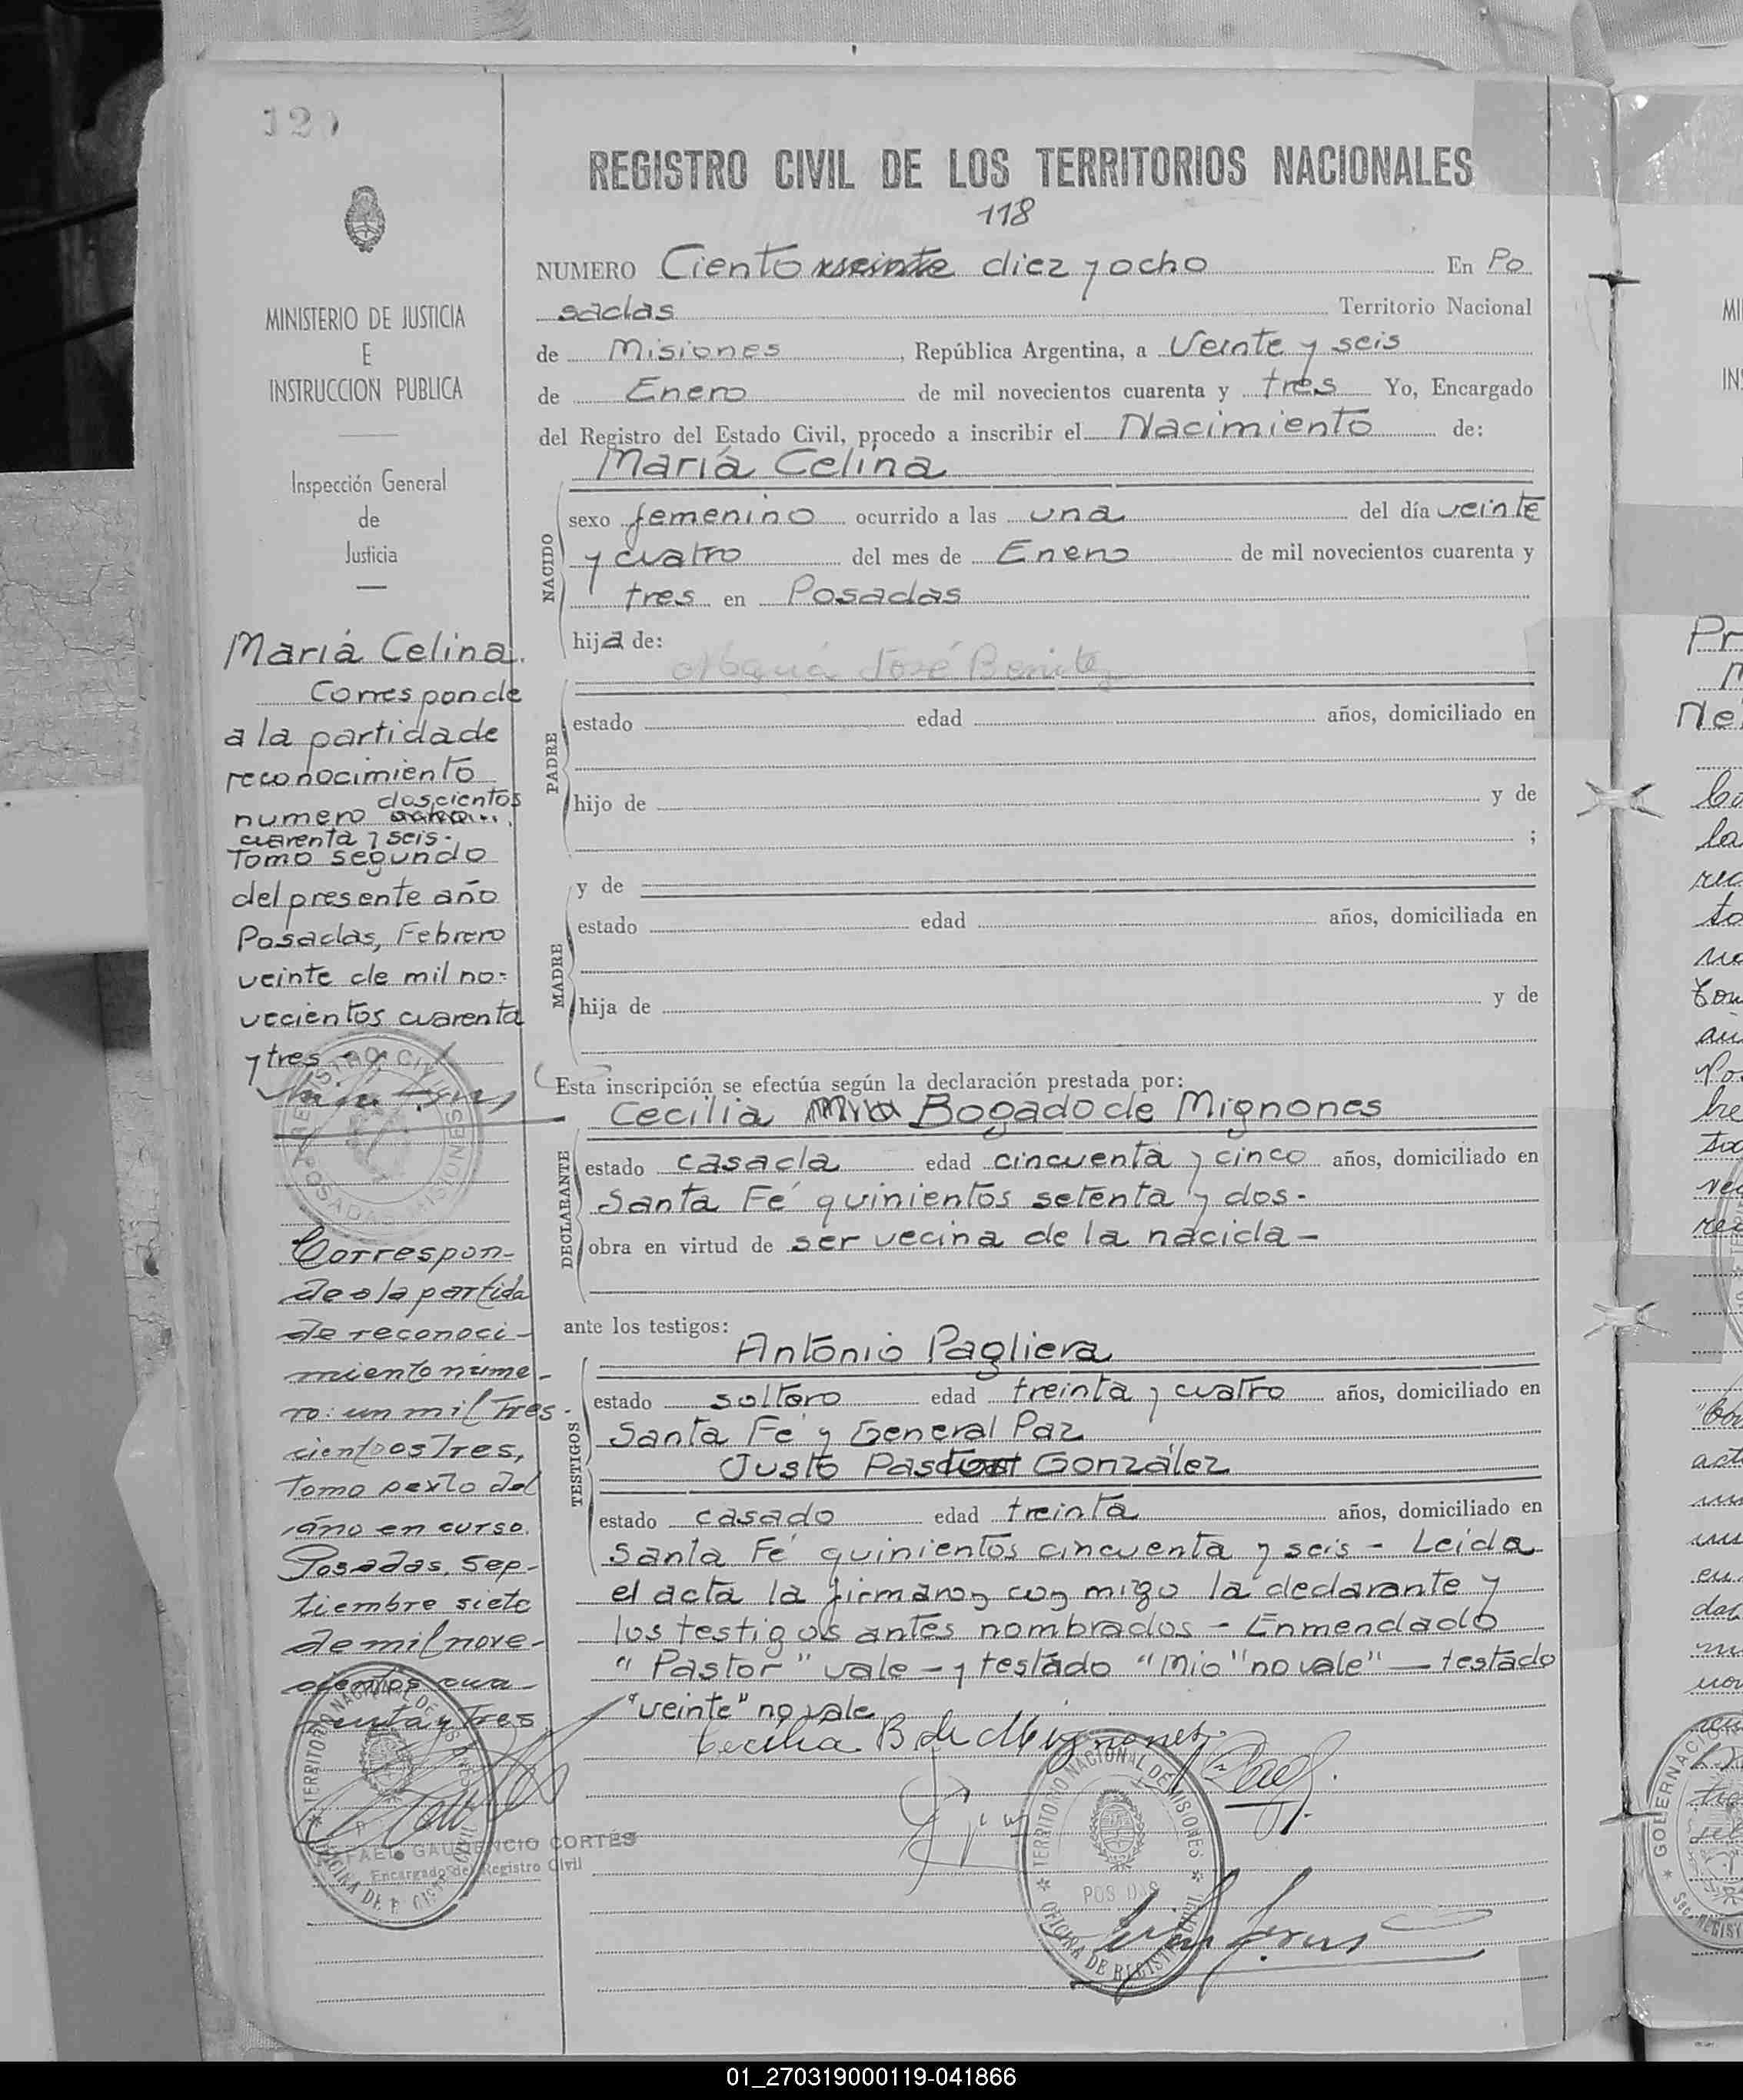 REGISTRO CIVIL DE LOS TERRITORIOS NACIONALES
118
NUMERO Ciento veinte diez y ocho En Po
sadas Territorio Nacional
de Misiones, República Argentina, a Veinte y seis
de Enero de mil novecientos cuarenta y tres Yo, Encargado
del Registro del Estado Civil, procedo a inscribir el Nacimiento de:
María Celina
NACIDO
sexo femenino ocurrido a las una del día veinte
y cuatro del mes de Enero de mil novecientos cuarenta y
tres en Posadas
hija de:
María José Benitez
PADRE
estado edad años, domiciliado en
hijo de y de
;
y de
MADRE
estado edad años, domiciliada en
hija de y de
Esta inscripción se efectúa según la declaración prestada por:
Cecilia Mio Bogado de Mignones
DECLARANTE
estado casada edad cincuenta y cinco años, domiciliado en
Santa Fé quinientos setenta y dos.
obra en virtud de ser vecina de la nacida -
ante los testigos:
Antonio Pagliera
TESTIGOS
estado soltero edad treinta y cuatro años, domiciliado en
Santa Fé y General Paz
Justo Pastor González
estado casado edad treinta años, domiciliado en
Santa Fé quinientos cincuenta y seis - Leida
el acta la firmaron con migo la declarante y
los testigos antes nombrados - Enmendado
"Pastor" vale - y testado "Mio" no vale" - testado
"veinte" no vale
Cecilia B de Mignones
TERRITORIO NACIONAL DE MISIONES
OFICINA DE REGISTRO CIVIL
MINISTERIO DE JUSTICIA
E
INSTRUCCION PUBLICA
Inspección General
de
Justicia
María Celina.
Corresponde
a la partida de
reconocimiento
numero doscientos
cuarenta y seis.
Tomo segundo
del presente año
Posadas, Febrero
veinte de mil no=
vecientos cuarenta
y tres
REGISTRO CIVIL
POSADAS MISIONES
Correspon-
de a la partida
de reconoci-
miento núme-
ro: un mil Tres-
cientos Tres,
Tomo sexto del
año en curso.
Posadas, Sep-
tiembre siete
de mil nove-
cientos cua-
renta y Tres
TERRITORIO NACIONAL DE MISIONES
RAFAEL GAUDENCIO CORTÉS
Encargado del Registro Civil
01_270319000119-041866